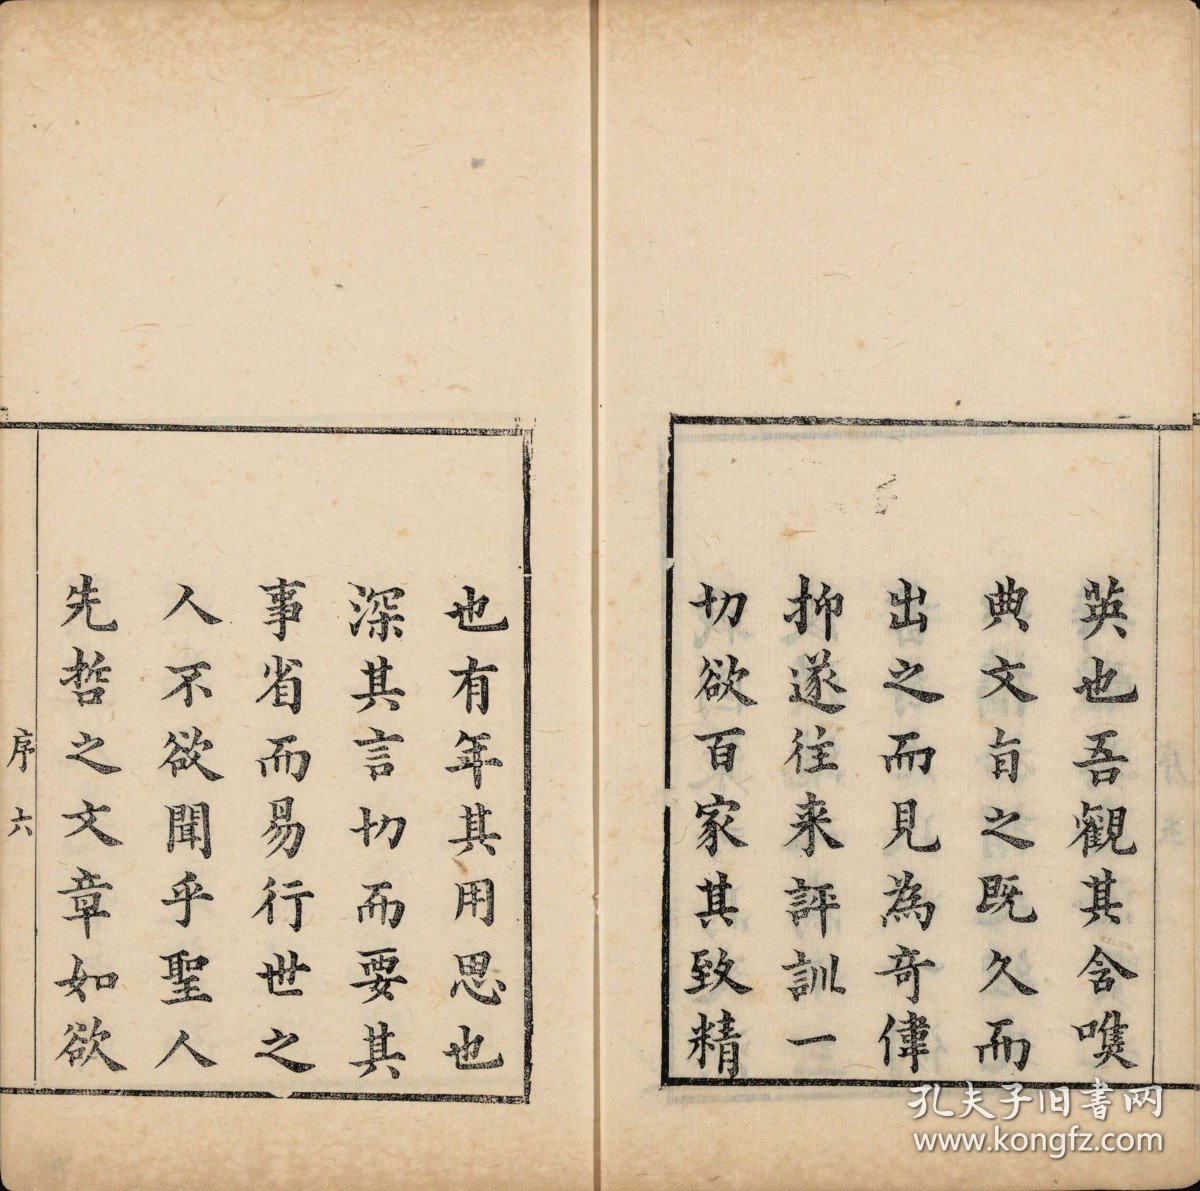 英也吾觀其含嘆
典文旨之既久而
出之而見為奇偉
抑遂往来評訓一
切欲百家其致精
也有年其用思也
深其言切而要其
事省而易行世之
人不欲聞乎聖人
先哲之文章如欲
序 六
孔夫子旧書网
www.kongfz.com